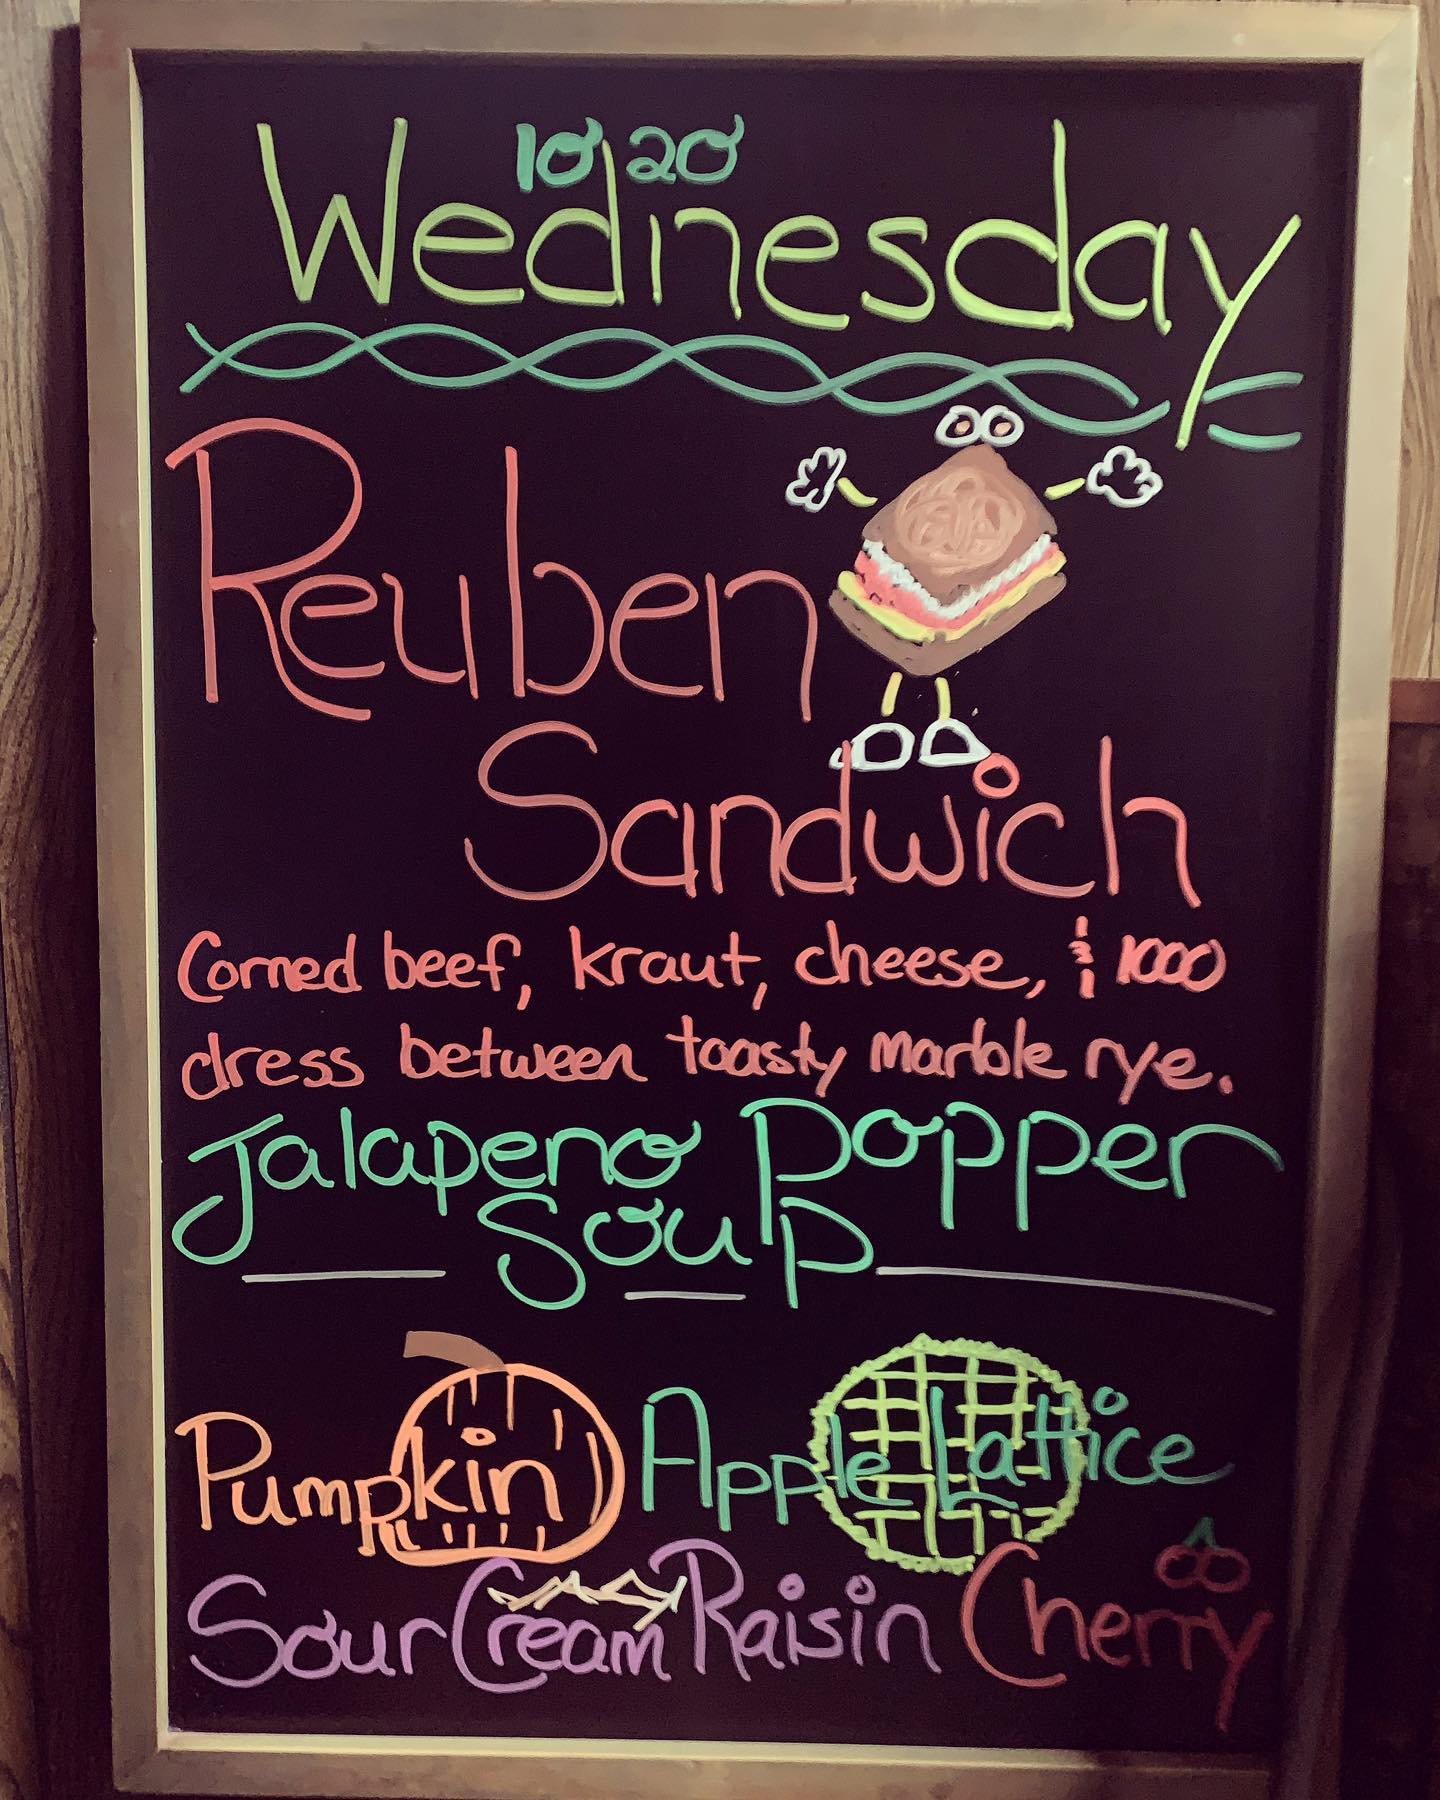 10/20
Wednesday
Reuben
Sandwich
Corned beef, kraut, cheese, & 1000
dress between toasty marble rye.
Jalapeno Popper
Soup
Pumpkin Apple Lattice
Sour Cream Raisin Cherry